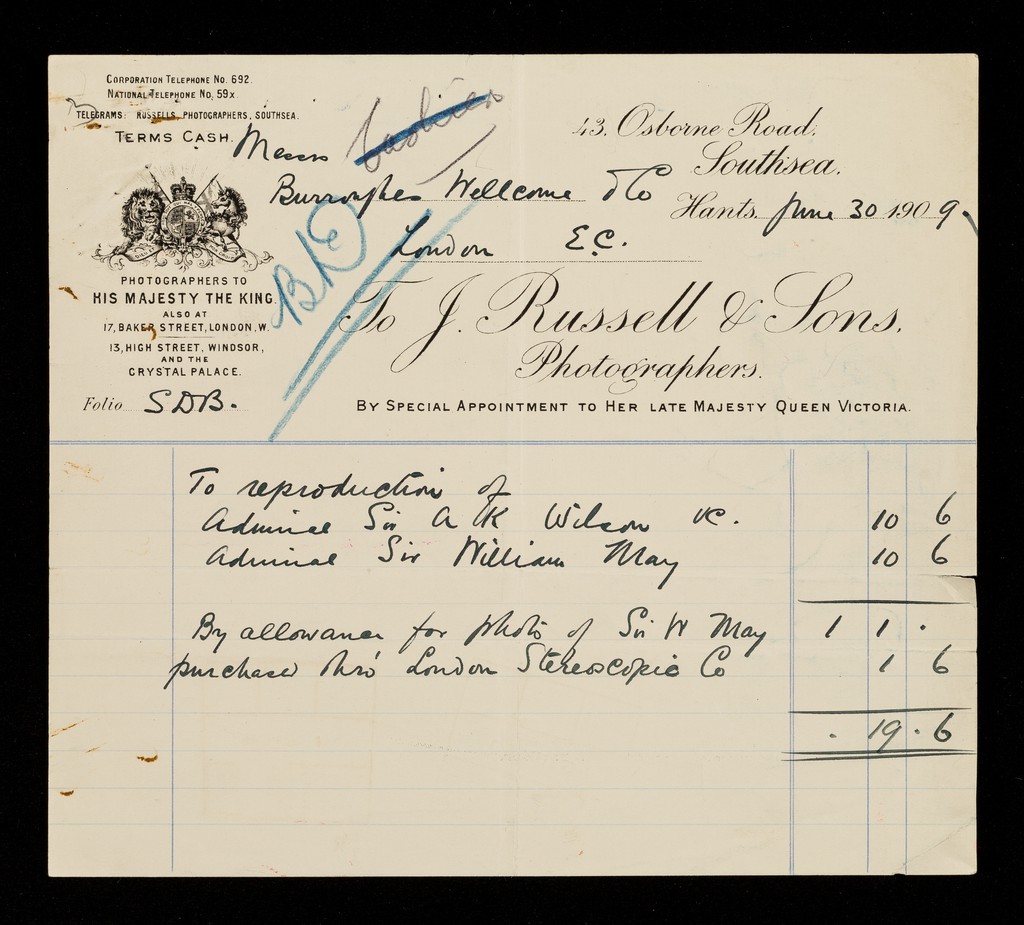 CORPORATION TELEPHONE No. 692.
NATIONAL TELEPHONE No. 59x.
TELEGRAMS: RUSSELLS, PHOTOGRAPHERS, SOUTHSEA.
TERMS CASH.
Cashier
43, Osborne Road,
Southsea.
Hants. June 30 1909.
Messrs
Burroughes Wellcome & Co
London E.C.
PHOTOGRAPHERS TO
HIS MAJESTY THE KING.
ALSO AT
17, BAKER STREET, LONDON, W.
13, HIGH STREET, WINDSOR,
AND THE
CRYSTAL PALACE.
Folio SDB.
To J. Russell & Sons,
Photographers.
BY SPECIAL APPOINTMENT TO HER LATE MAJESTY QUEEN VICTORIA.
To reproduction of
Admiral Sir A K Wilson VC. 10 6
Admiral Sir William May 10 6
By allowance for photo of Sir W May 1 1 .
purchased thro' London Stereoscopic Co 1 6
. 19 . 6